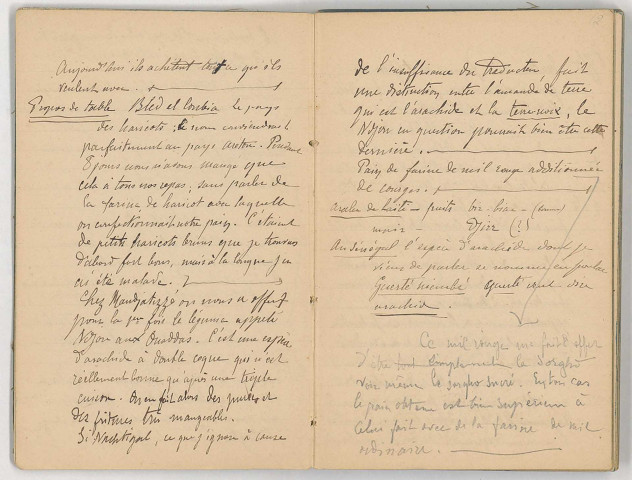 Aujourd'hui ils achètent tout ce qu'ils
veulent avoir.
Propos de table Bled el Loubia le pays
des haricots; ce nom conviendrait
parfaitement au pays
8 jours nous n'avons mangé que
cela à tous nos repas, sans parler de
la farine de haricot avec laquelle
on confectionnait notre pain. C'étaient
de petits haricots bruns que je trouvais
d'abord fort bons, mais à la longue j'en
ai été malade.
Chez on nous a offert
pour la 1ère fois le légume appelé
Ndjou aux C'est une espèce
d'arachide à double coque qui n'est
réellement bonne qu'après une triple
cuisson. On en fait alors des purées et
des fritures très mangeables.
Si Nachtigal, ce que j'ignore à cause
de l'insuffisance du traducteur, fait
une distinction entre l'amande de terre
qui est l'arachide et la terre-noix, le
Ndjou en question pourrait bien être cette
dernière.
Pain de farine de mil rouge additionnée
de courges.
fruits
noir - Djir (?)
Au Sénégal l'espèce d'arachide dont je
viens de parler se nomme
Guerté guerté veut dire
arachide.
Ce mil rouge me fait l'effet
d'être tout simplement le sorgho
voir même le sorgho sucré. En tout cas
le pain obtenu est bien supérieur à
celui fait avec de la farine de mil
ordinaire.